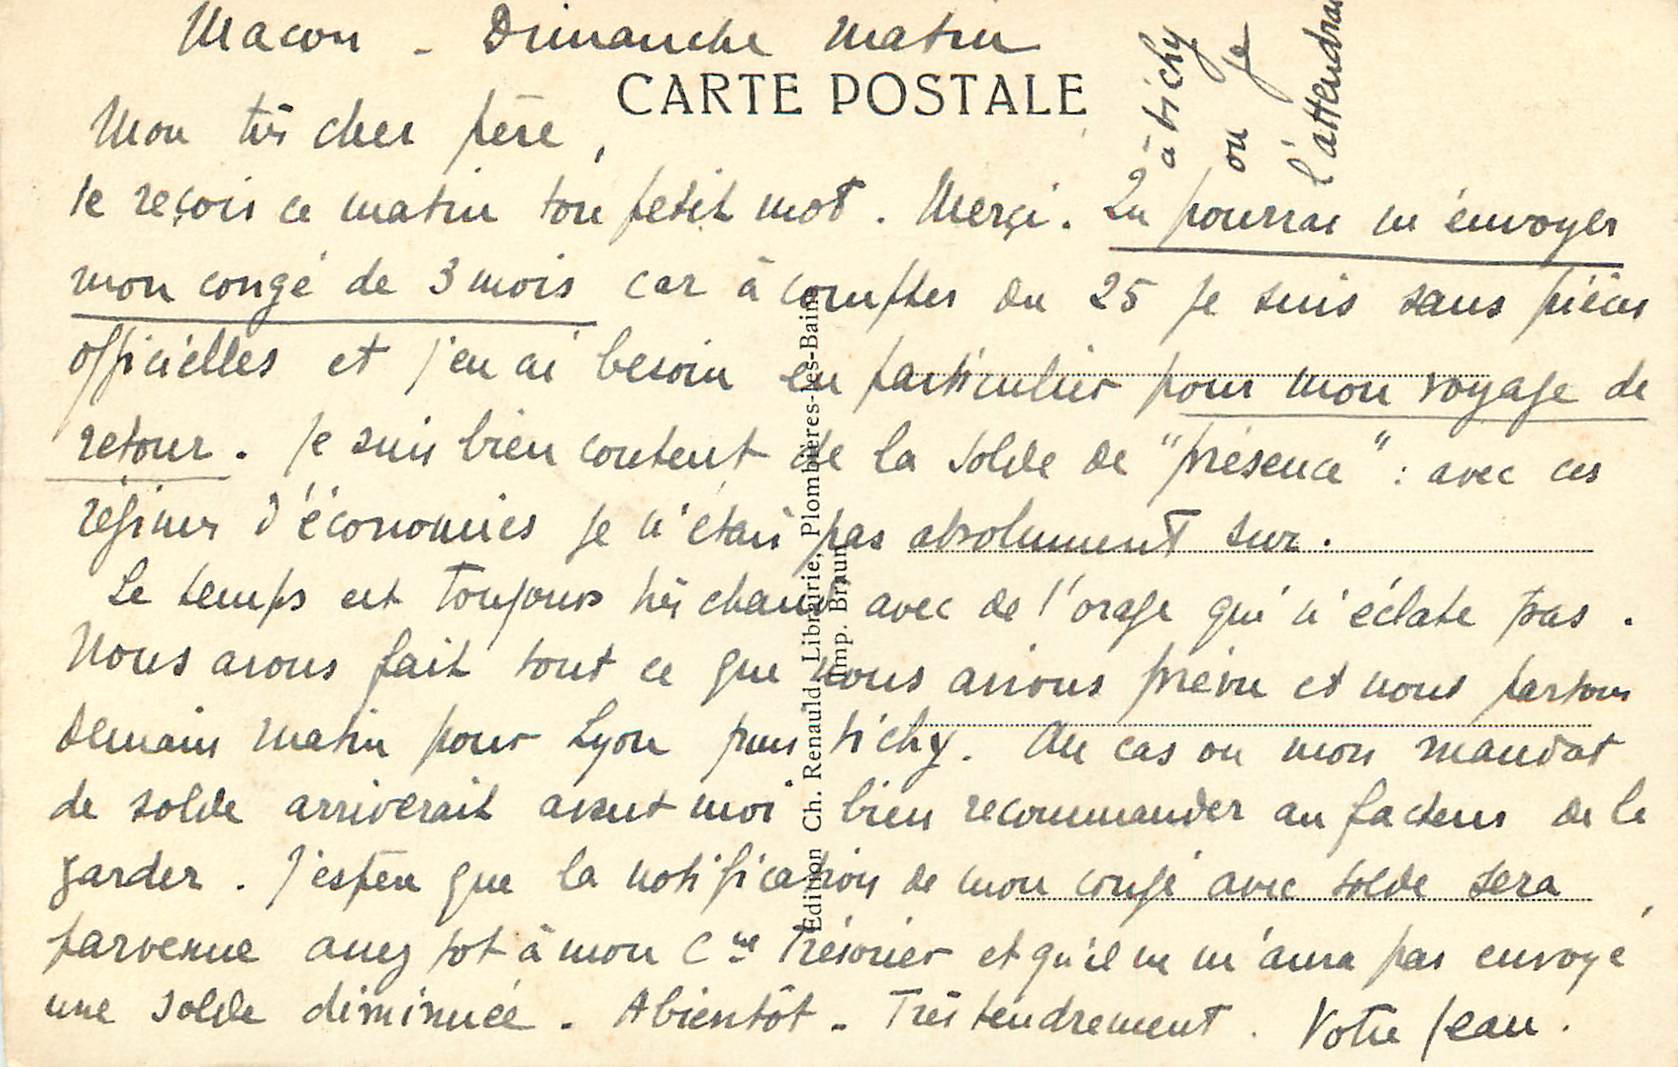 Macon - Dimanche matin
CARTE POSTALE
Mon très cher père,
Je reçois ce matin ton petit mot. Merçi. Tu pourras m'envoyer
à Vichy
où je
l'attendrai
mon congé de 3 mois car à compter du 25 je suis sans pièces
officielles et j'en ai besoin en particulier pour mon voyage de
retour. Je suis bien content de la solde de "présence" : avec ces
régimes d'économies je n'étais pas absolument sur.
Le temps est toujours très chaud avec de l'orage qui n'éclate pas.
Nous avons fait tout ce que nous avions prévu et nous partons
demain matin pour Lyon puis Vichy. Au cas ou mon mandat
de solde arriverait avant moi bien recommander au facteur de le
garder. J'espère que la notification de mon congé avec solde sera
parvenue assez tot à mon Cne Trésorier et qu'il ne m'aura pas envoyé
une solde diminuée. A bientôt. Très tendrement. Votre Jean.
Edition Ch. Renauld, Librairie, Plombières-les-Bains
Imp. Braun